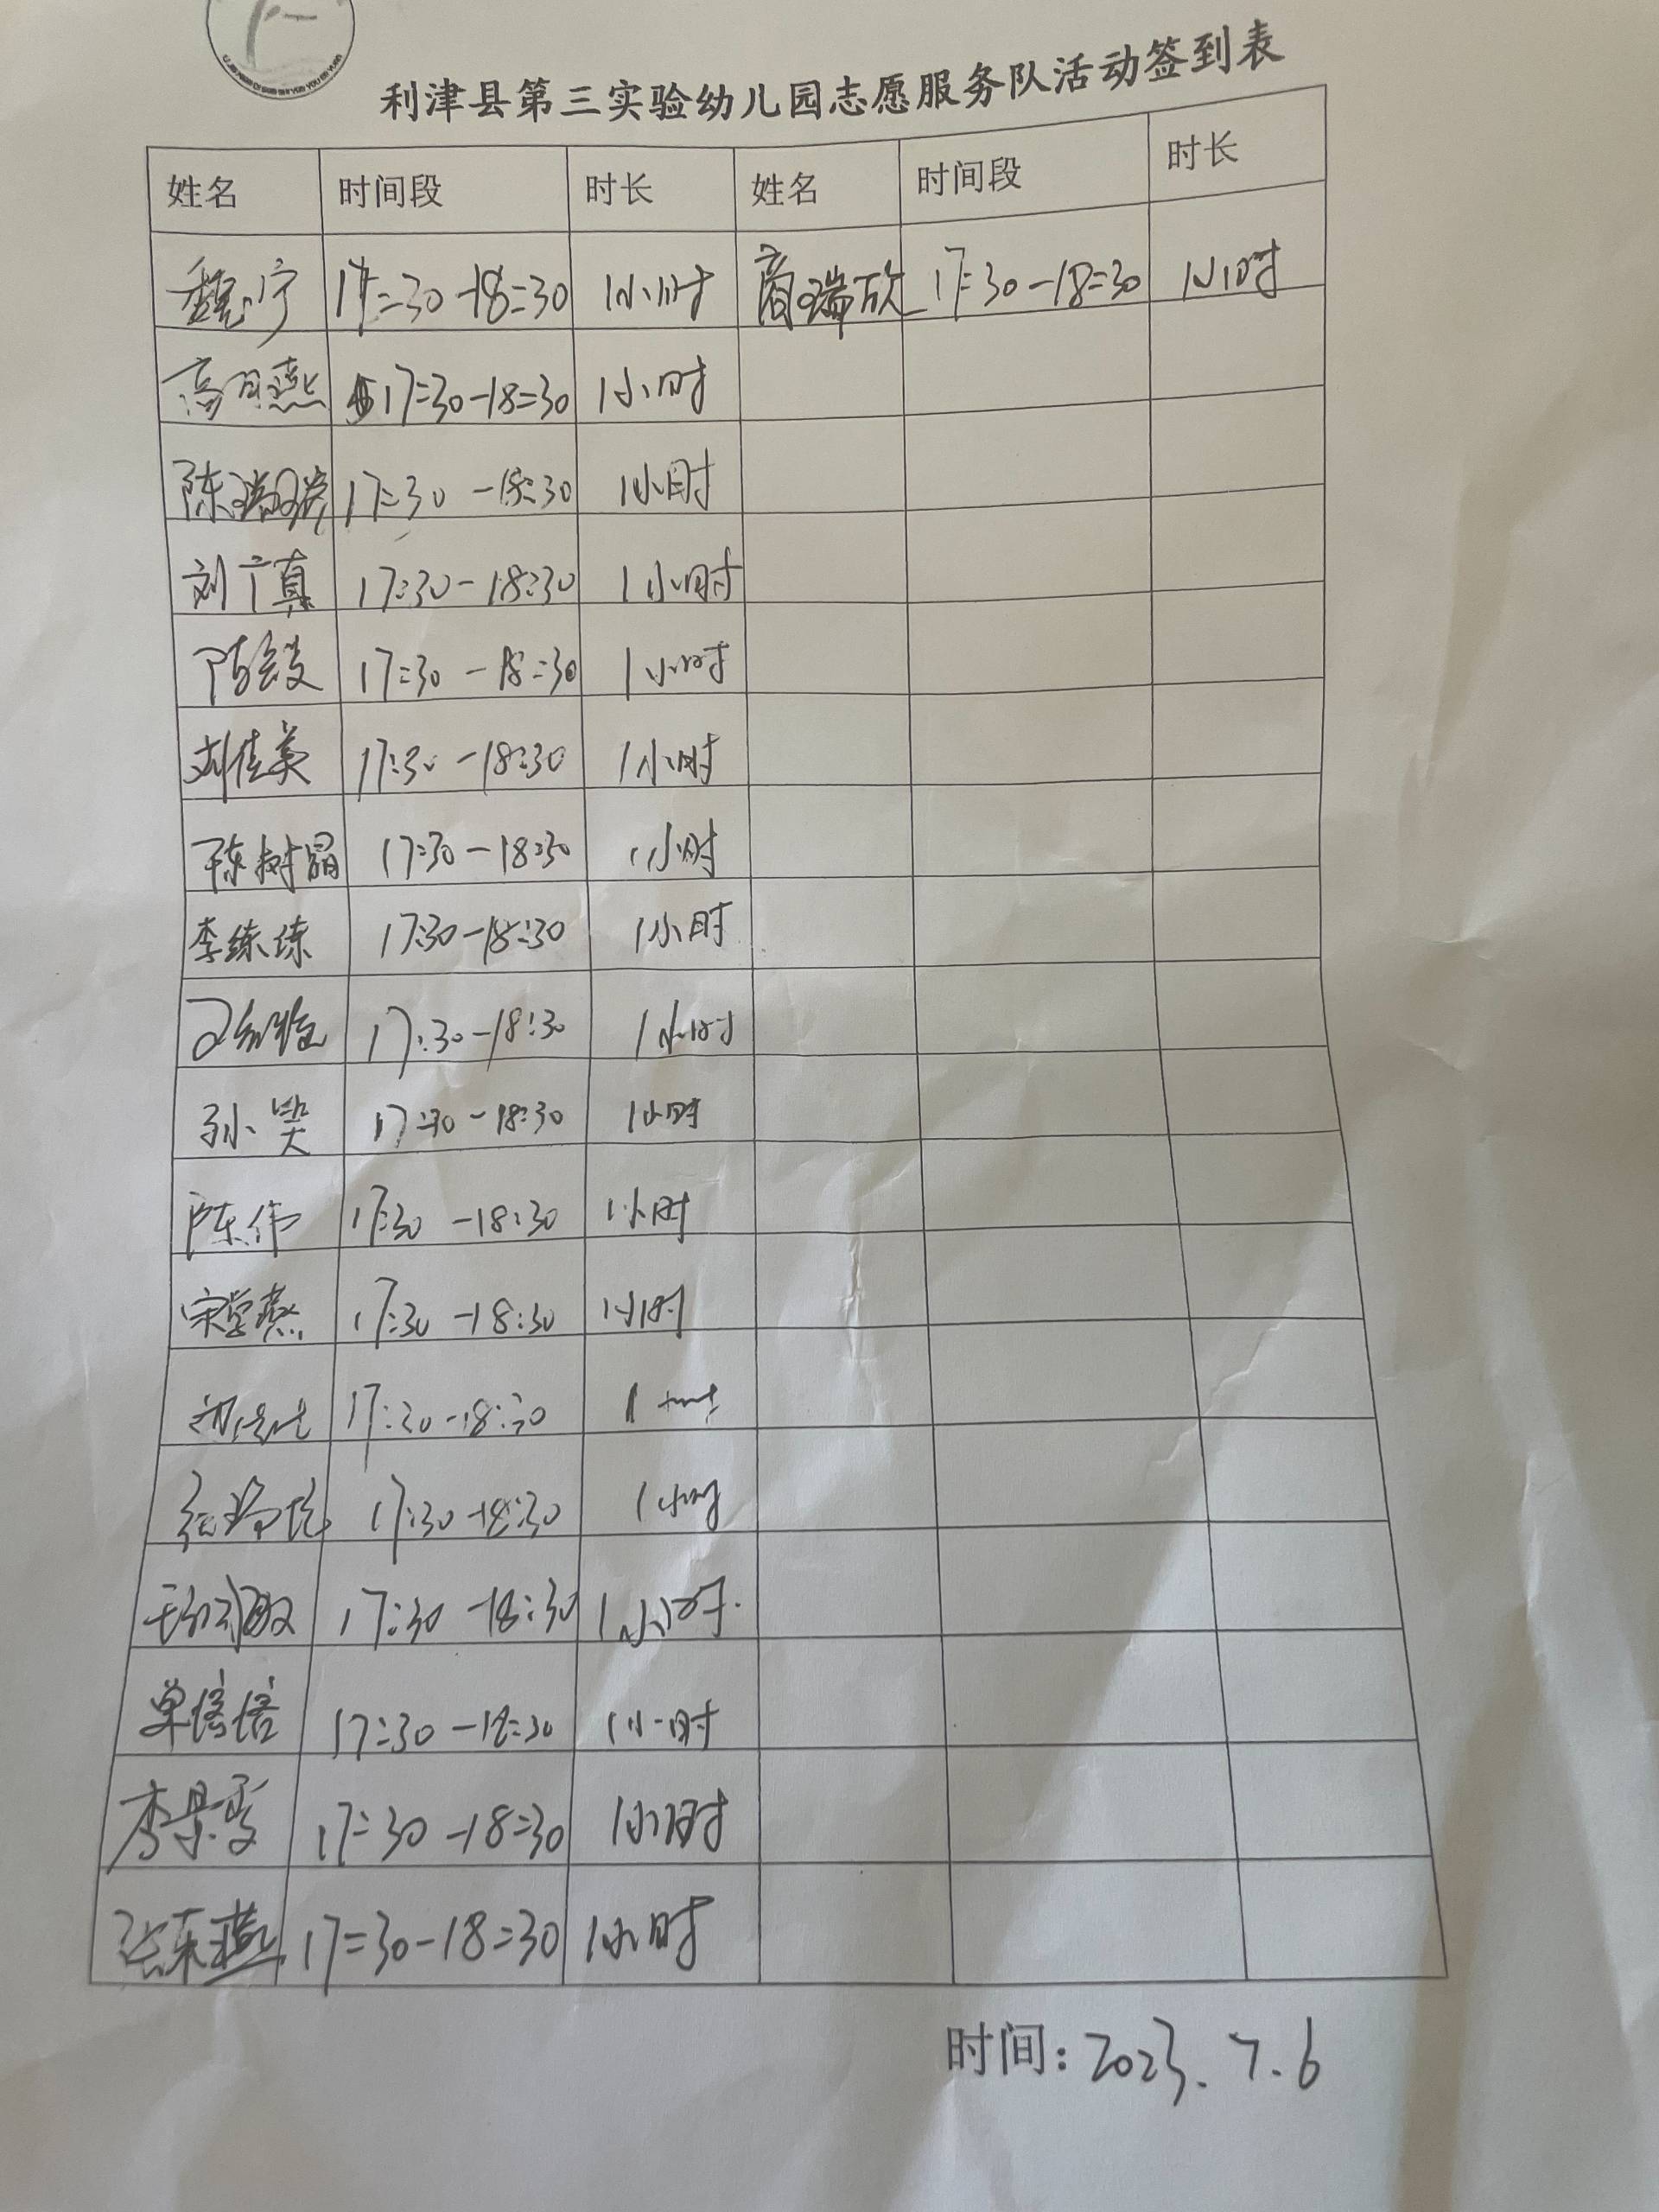 利津县第三实验幼儿园志愿服务队活动签到表
姓名 时间段 时长 姓名 时间段 时长
魏宁 17:30-18:30 1小时 商瑞欣 17:30-18:30 1小时
高月燕 17:30-18:30 1小时
陈瑞瑞 17:30-18:30 1小时
刘广真 17:30-18:30 1小时
17:30-18:30 1小时
刘佳美 17:30-18:30 1小时
陈树晶 17:30-18:30 1小时
李练练 17:30-18:30 1小时
17:30-18:30 1小时
孙笑 17:30-18:30 1小时
陈伟 17:30-18:30 1小时
宋堂燕 17:30-18:30 1小时
17:30-18:30 1小时
17:30-18:30 1小时
17:30-18:30 1小时
单倍倍 17:30-18:30 1小时
李景雪 17:30-18:30 1小时
张东燕 17:30-18:30 1小时
时间：2023.7.6